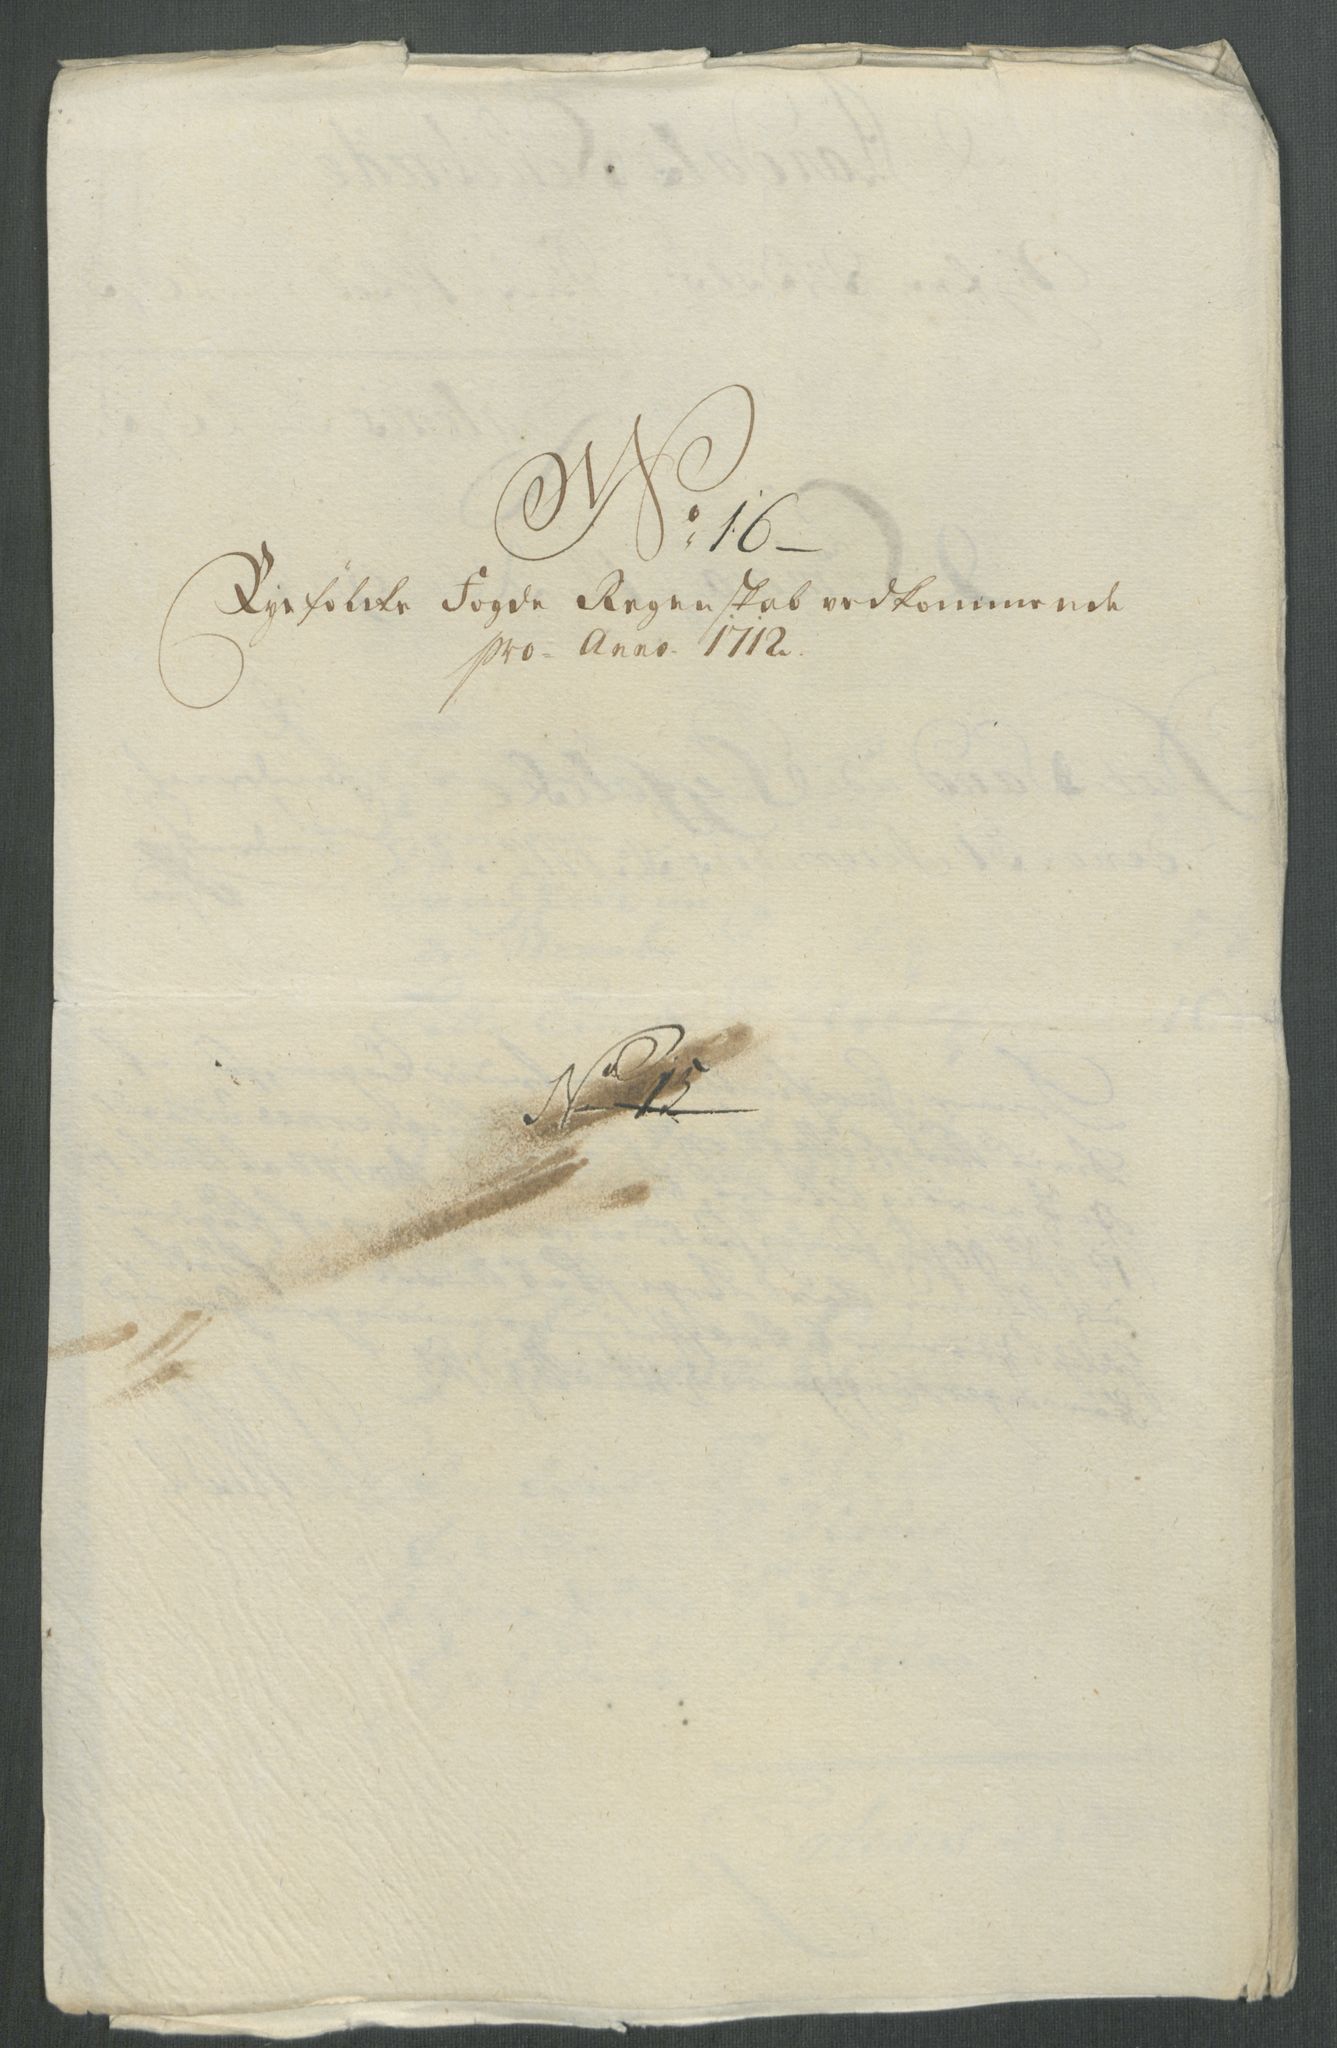 No: 16
Ryefölcke Fogde Regenskab vedkommende
pro Anno 1712.
No 15